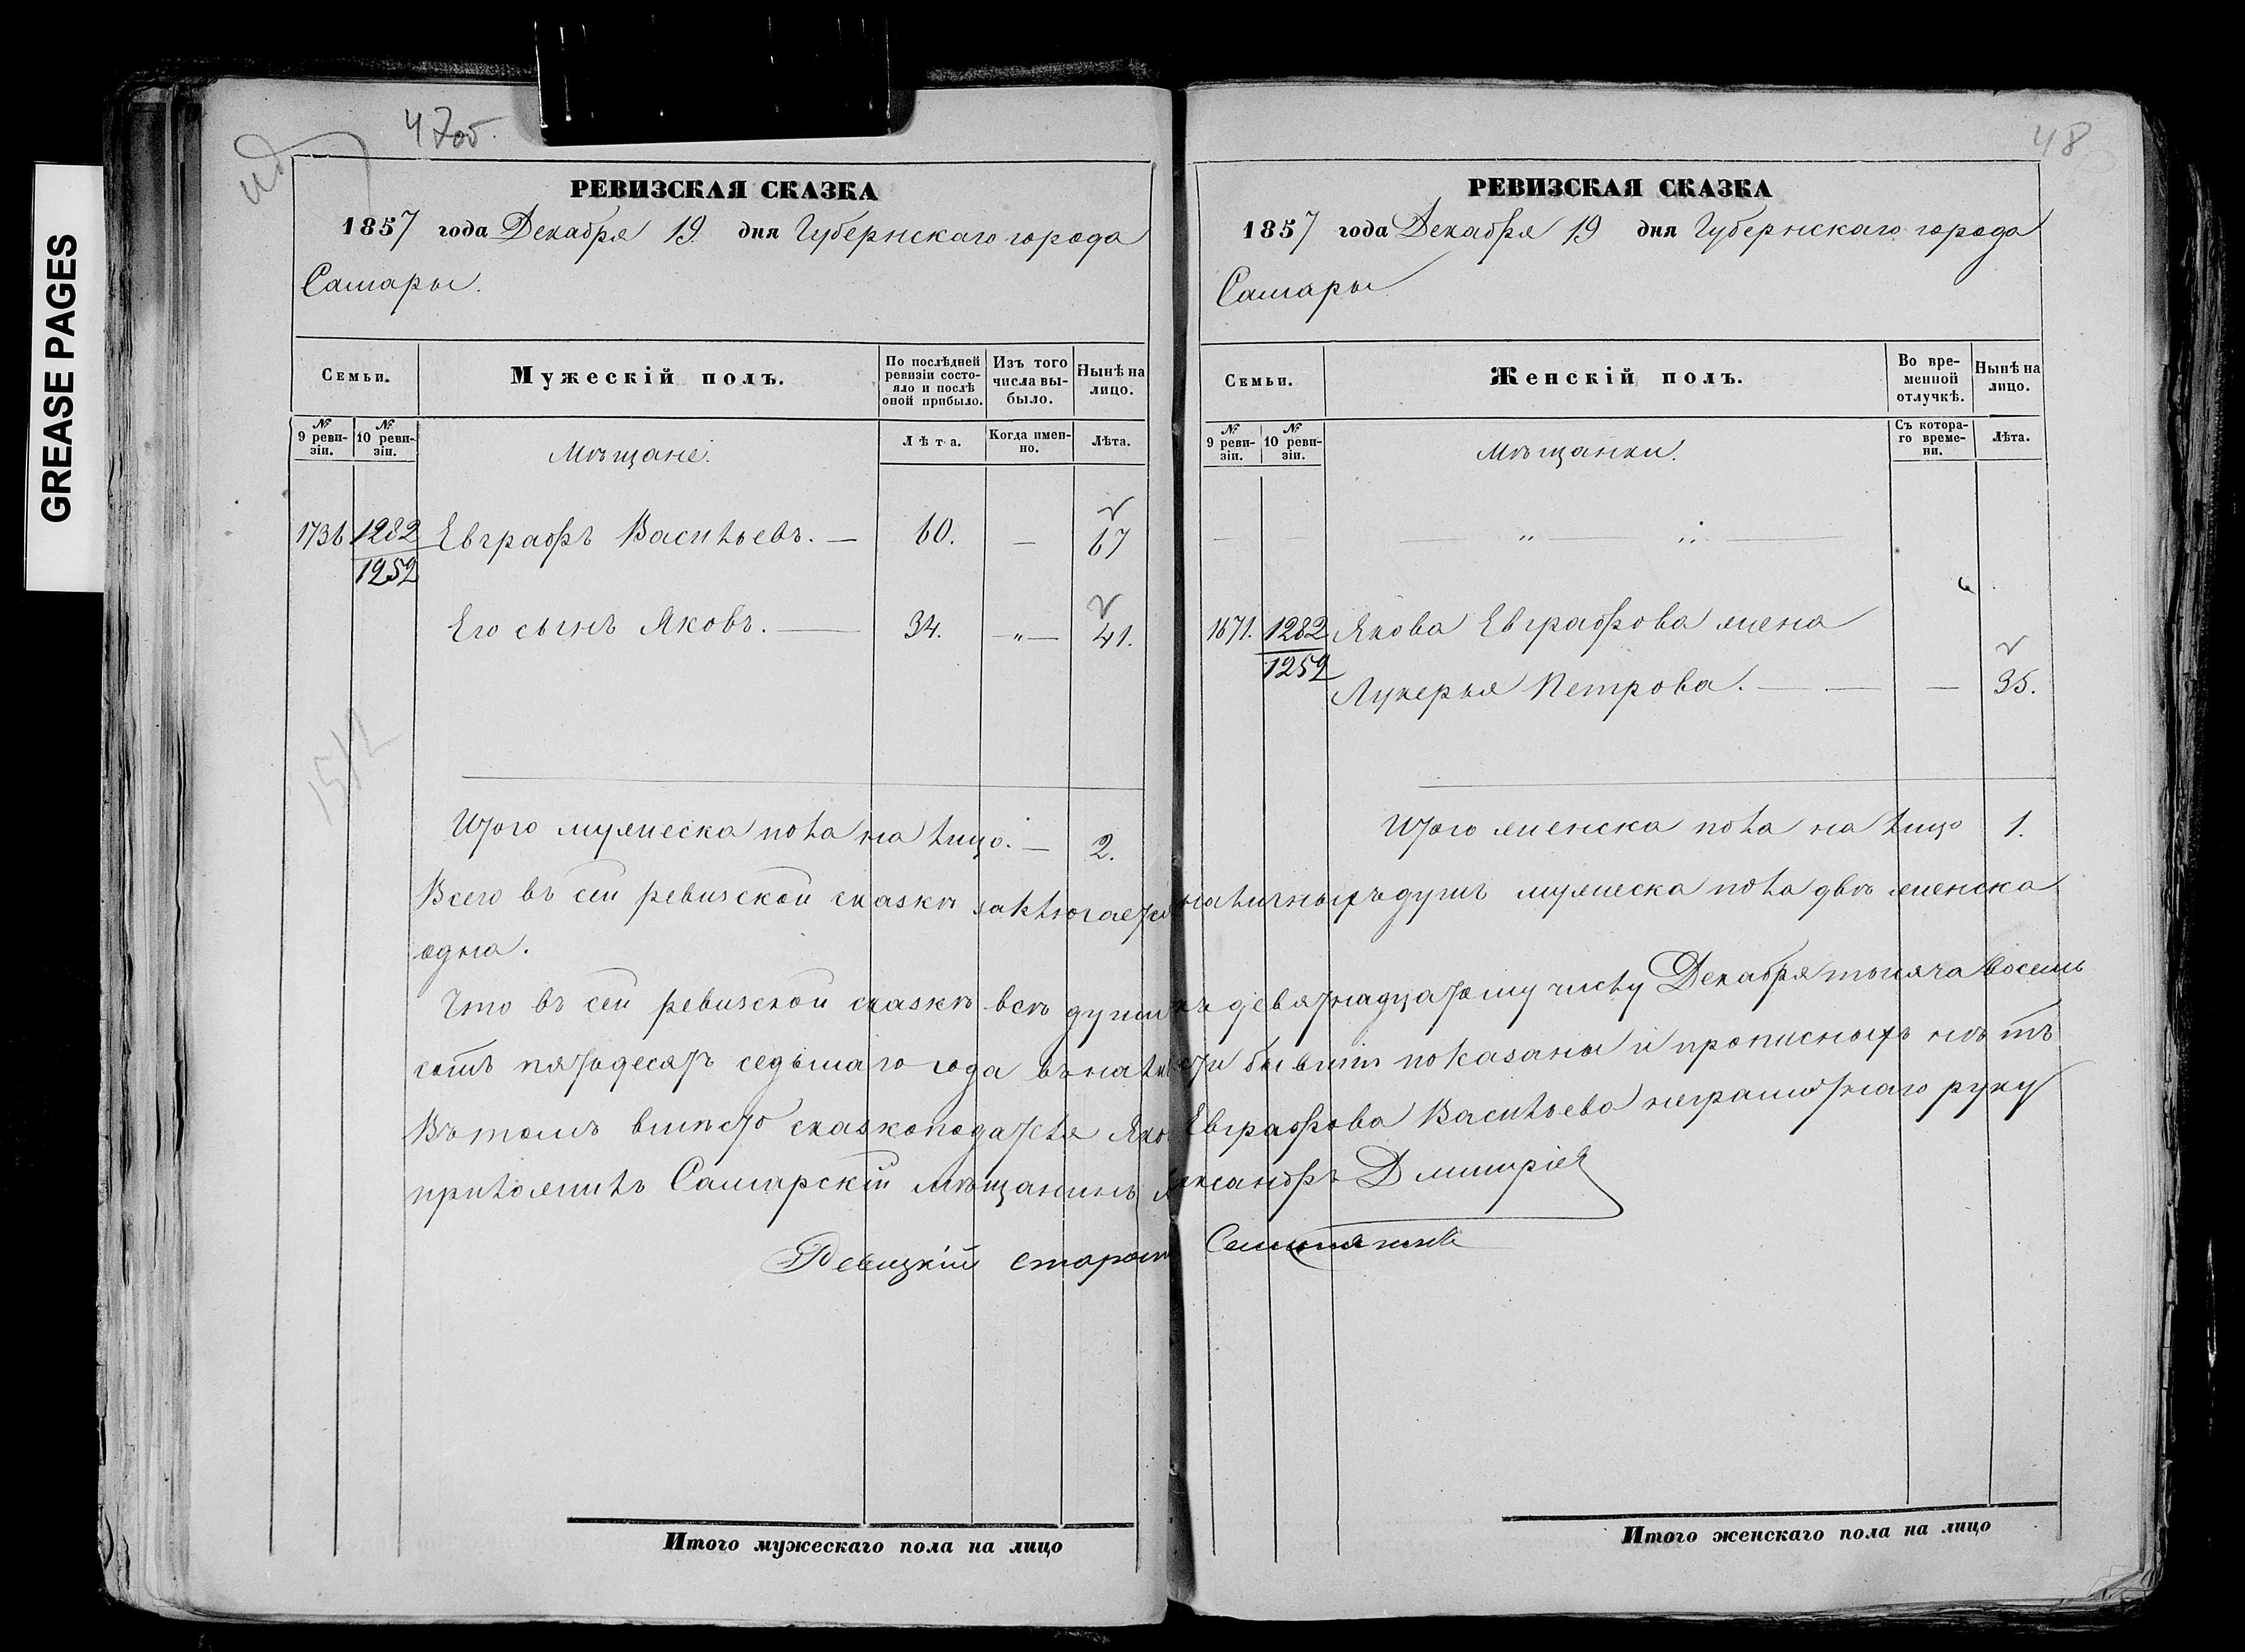 GREASE PAGES
47об.
РЕВИЗСКАЯ СКАЗКА
1857 года Декабря 19. дня Губернскаго города
Самары.
Семьи.
Мужескій полъ.
По послѣдней ревизіи состояло и послѣ оной прибыло.
Изъ того числа выбыло.
Нынѣ на лицо.
№ 9 ревизіи.
№ 10 ревизіи.
Мѣщане.
Лѣта.
Когда именно.
Лѣта.
1736 1282 Евграфъ Васильевъ. — 60. — 67
1252
Его сынъ Яковъ. — 34. — „ — 41.
Итого мужеска пола на лицо. — 2.
48
РЕВИЗСКАЯ СКАЗКА
1857 года Декабря 19 дня Губернскаго города
Самары
Семьи.
Женскій полъ.
Во временной отлучкѣ.
Нынѣ на лицо.
№ 9 ревизіи.
№ 10 ревизіи.
Мѣщанки.
Съ котораго времени.
Лѣта.
1671. 1282 Якова Евграфова жена
1252
Лукерья Петрова. — — — 35.
Итого женска пола на лицо 1.
Всего въ сей ревизской сказкѣ заключается наличныхъ душъ мужеска пола двѣ женска
одна.
Что въ сей ревизской сказкѣ всѣ души къ девятнадцатому числу Декабря тысяча восемь
сотъ пятьдесятъ седьмаго года въ наличности бывшіе показаны и прописныхъ нѣтъ
Въ томъ вмѣсто сказкоподателя Яко Евграфова Васильева неграмотнаго руку
приложилъ Самарскій мѣщанинъ Александръ Дмитріев
старост
Итого мужескаго пола на лицо
Итого женскаго пола на лицо